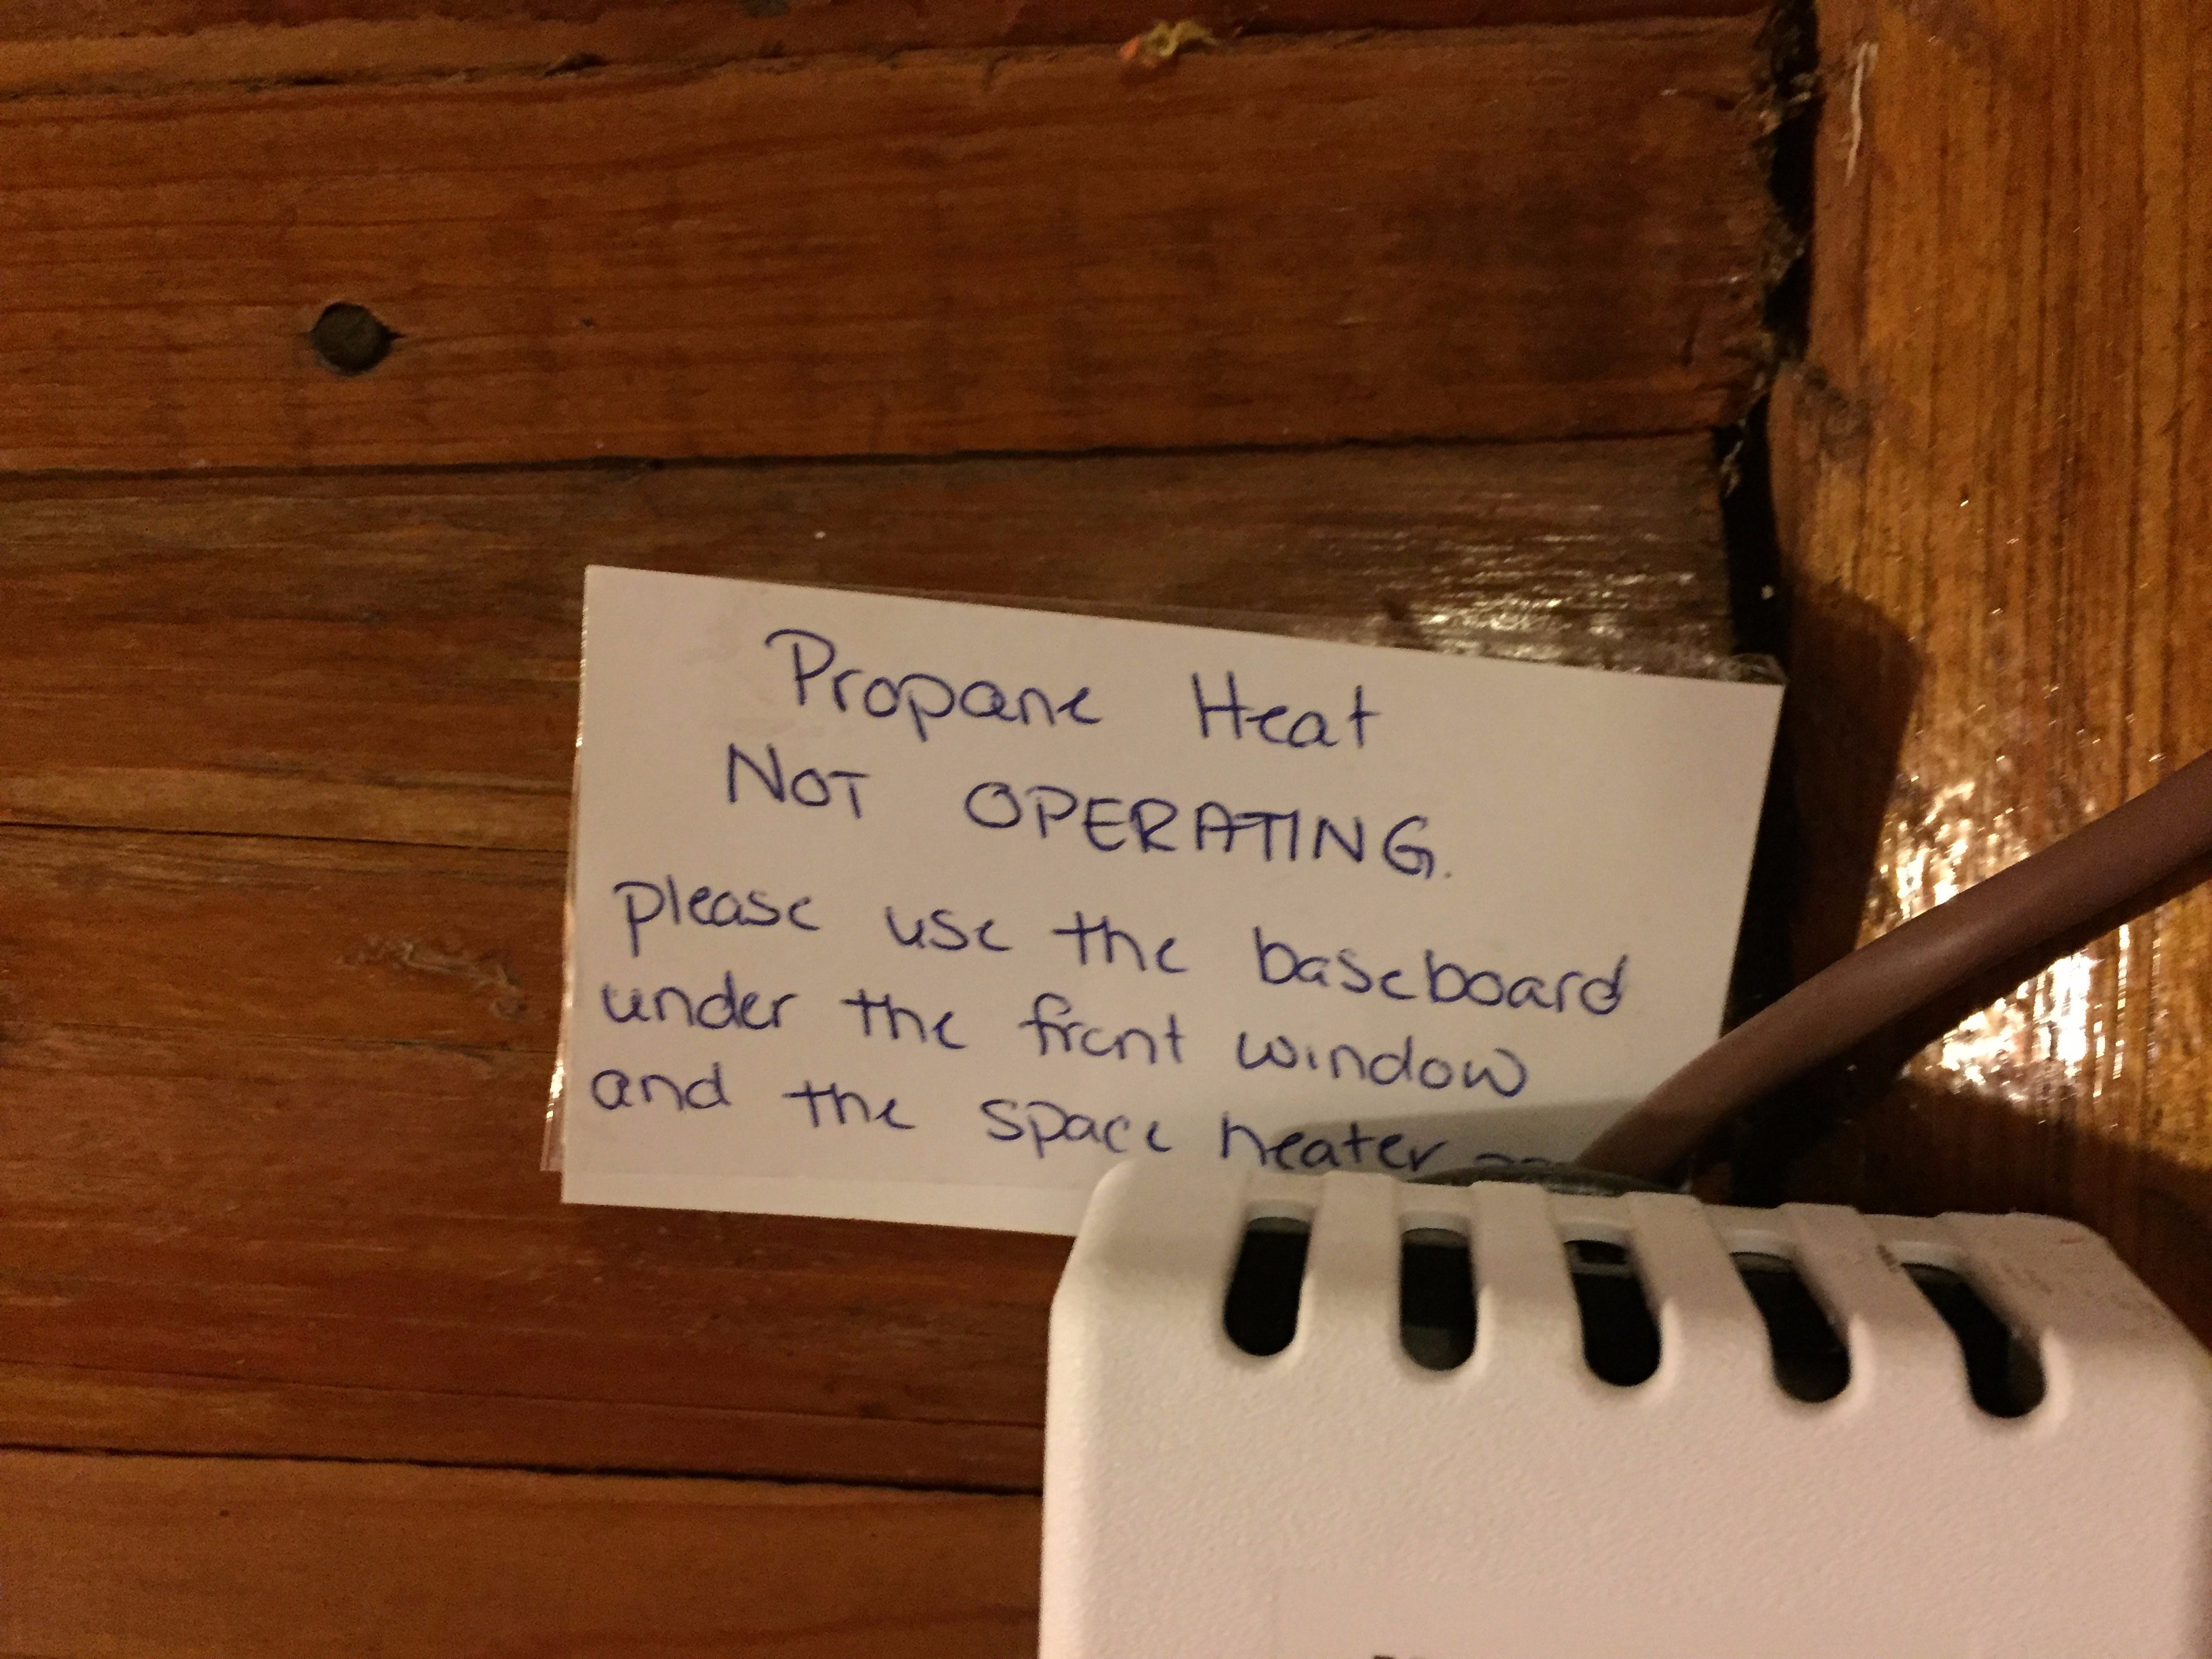 Propane Heat
NOT OPERATING.
please use the baseboard
under the front window
and the space heater